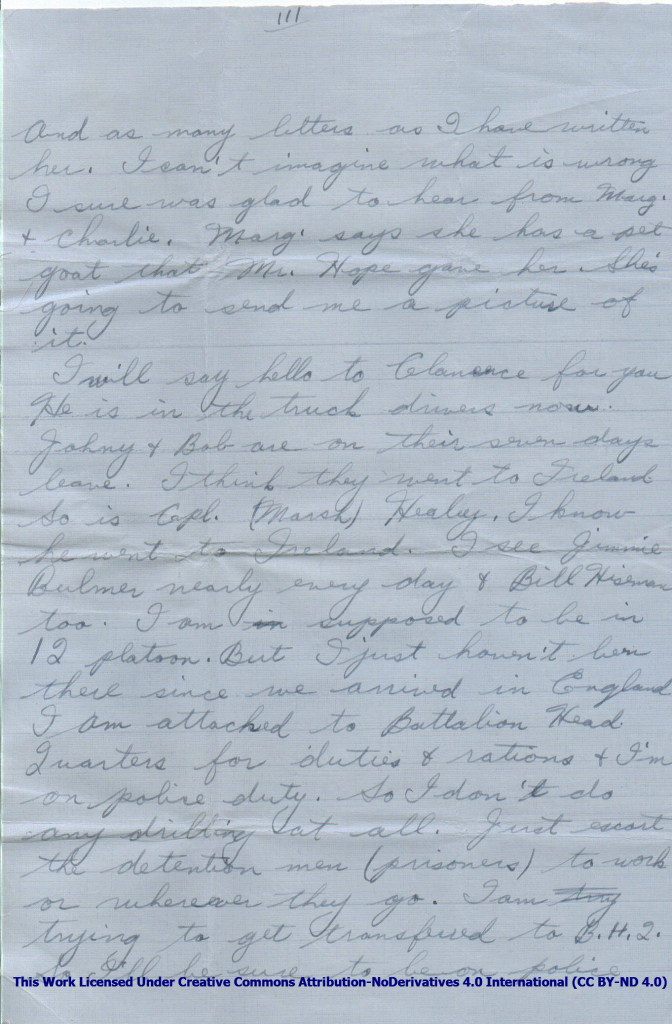 111
And as many letters as I have written
her. I can't imagine what is wrong
I sure was glad to hear from Marg.
& Charlie. Marg. says she has a pet
goat that Mr. Hope gave her. She's
going to send me a picture of
it.
I will say hello to Clarence for you
He is in the truck drivers now.
Johny & Bob are on their seven days
leave. I think they went to Ireland
So is Cpl. (Marsh) Healey. I know
he went to Ireland. I see Jimmie
Bulmer nearly every day & Bill
too. I am in supposed to be in
12 platoon. But I just haven't ben
there since we arrived in England
I am attached to Battalion Head
Quarters for duties & rations & I'm
on police duty. So I don't do
any drilling at all. Just escort
the detention men (prisoners) to work
or wherever they go. I am try
trying to get transfered to B.H.Q.
So I'll be sure to be on police
This Work Licensed Under Creative Commons Attribution-NoDerivatives 4.0 International (CC BY-ND 4.0)